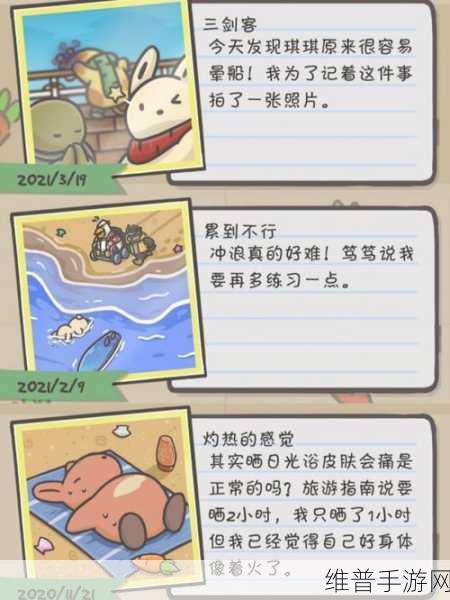 三剑客
今天发现琪琪原来很容易
晕船！我为了记着这件事
拍了一张照片。
2021/3/19
累到不行
冲浪真的好难！笃笃说我
要再多练习一点。
2021/2/9
灼热的感觉
其实晒日光浴皮肤会痛是
正常的吗？旅游指南说要
晒2小时，我只晒了1小时
但我已经觉得自己好身体
像着火了。
2020/11/21
维普手游网